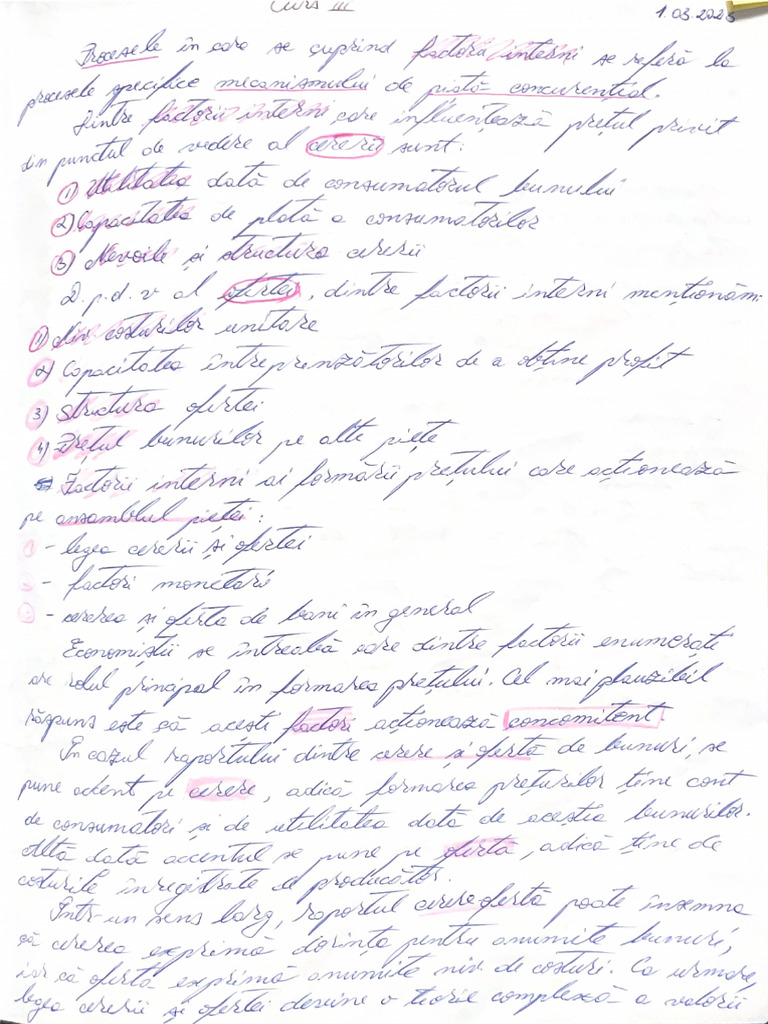 Curs III
1.03.2023
Procesele în care se cuprind factorii interni se referă la
procesele specifice mecanismului de piață concurențial.
Dintre factorii interni care influențează prețul privit
din punctul de vedere al cererii sunt:
1) Utilitatea dată de consumatorul bunului
2) Capacitatea de plată a consumatorilor
3) Nevoile și structura cererii
D.p.d.v al ofertei, dintre factorii interni menționăm:
1) din costurilor unitare
2) Capacitatea întreprinzătorilor de a obține profit
3) Structura ofertei
4) Prețul bunurilor pe alte piețe
Factorii interni ai formării prețului care acționează
pe ansamblul pieței:
- legea cererii și ofertei
- factori monetari
- cererea și oferta de bani în general
Economiștii se întreabă care dintre factorii enumerați
are rolul principal în formarea prețului. Cel mai plauzibil
răspuns este că acești factori acționează concomitent.
În cazul raportului dintre cerere și ofertă de bunuri, se
pune accent pe cerere, adică formarea prețurilor ține cont
de consumatori și de utilitatea dată de aceștia bunurilor.
Altă dată accentul se pune pe oferta, adică ține de
costurile înregistrate de producător.
Într-un sens larg, raportul cerere ofertă poate însemna
că cererea exprimă dorința pentru anumite bunuri,
iar că ofertă exprimă anumite niv. de costuri. Ca urmare,
legea cererii și ofertei devine o teorie complexă a valorii